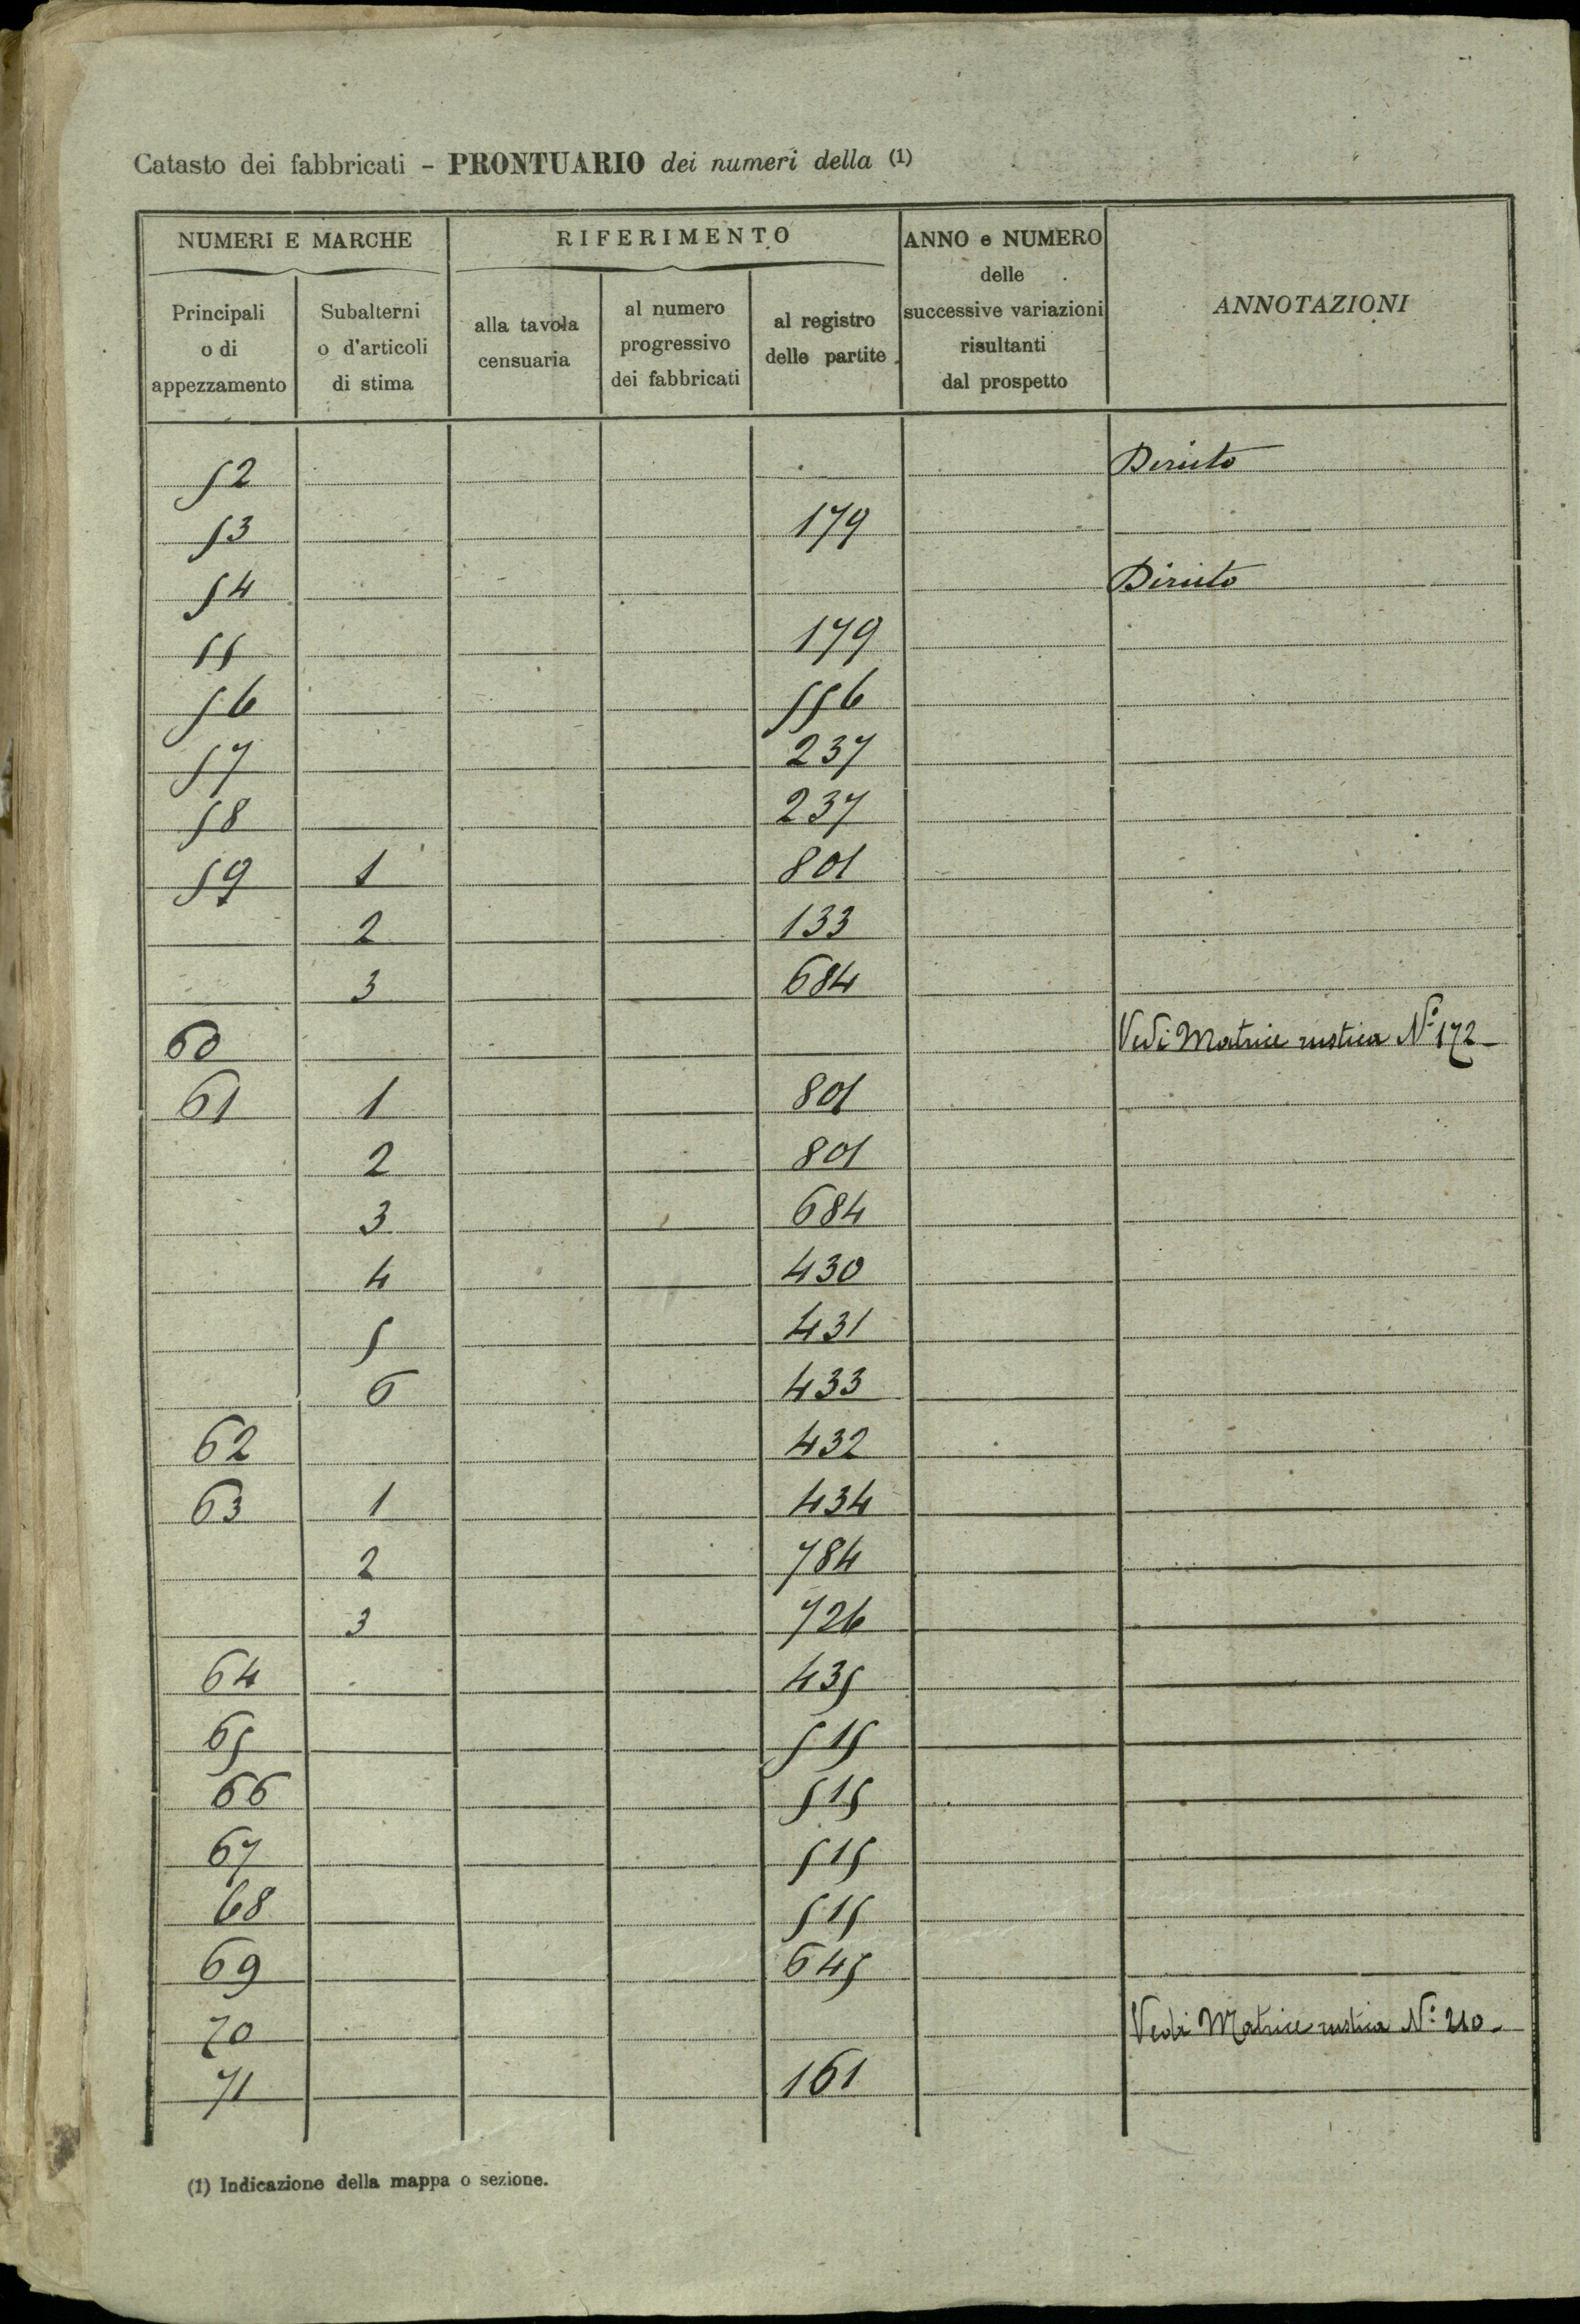 Catasto dei fabbricati - PRONTUARIO dei numeri della (1)
NUMERI E MARCHE
Principali
o di
appezzamento
Subalterni
o d'articoli
di stima
RIFERIMENTO
alla tavola
censuaria
al numero
progressivo
dei fabbricati
al registro
delle partite
ANNO e NUMERO
delle
successive variazioni
risultanti
dal prospetto
ANNOTAZIONI
52 Diruto
53 179
54 Diruto
55 179
56 556
57 237
58 237
59 1 801
2 133
3 684
60 Vedi Matrice rustica N° 172
61 1 801
2 801
3 684
4 430
5 431
6 433
62 432
63 1 434
2 784
3 726
64 435
65 515
66 515
67 515
68 515
69 645
70 Vedi Matrice rustica N° 210
71 161
(1) Indicazione della mappa o sezione.